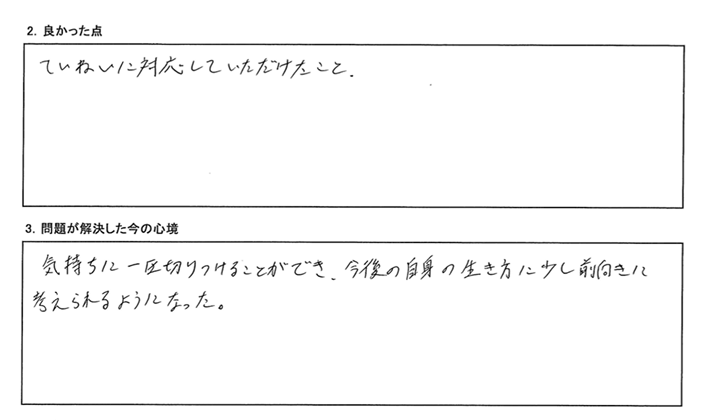 2. 良かった点
ていねいに対応していただけたこと.
3. 問題が解決した今の心境
気持ちに一区切りつけることができ、今後の自身の生き方に少し前向きに
考えられるようになった。